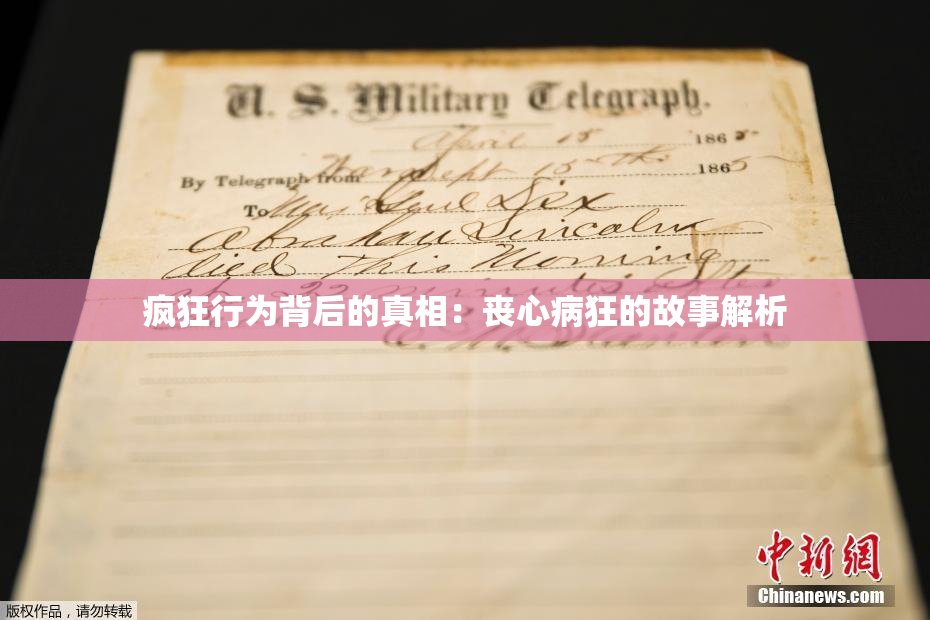 U. S. Military Telegraph.
April 15 1865
By Telegraph from War Dept 15th 1865
To Maj Genl Dix
Abraham Lincoln
died This Morning
at 22 minutes after
疯狂行为背后的真相：丧心病狂的故事解析
E. M. Stanton
中新网
Chinanews.com
版权作品，请勿转载